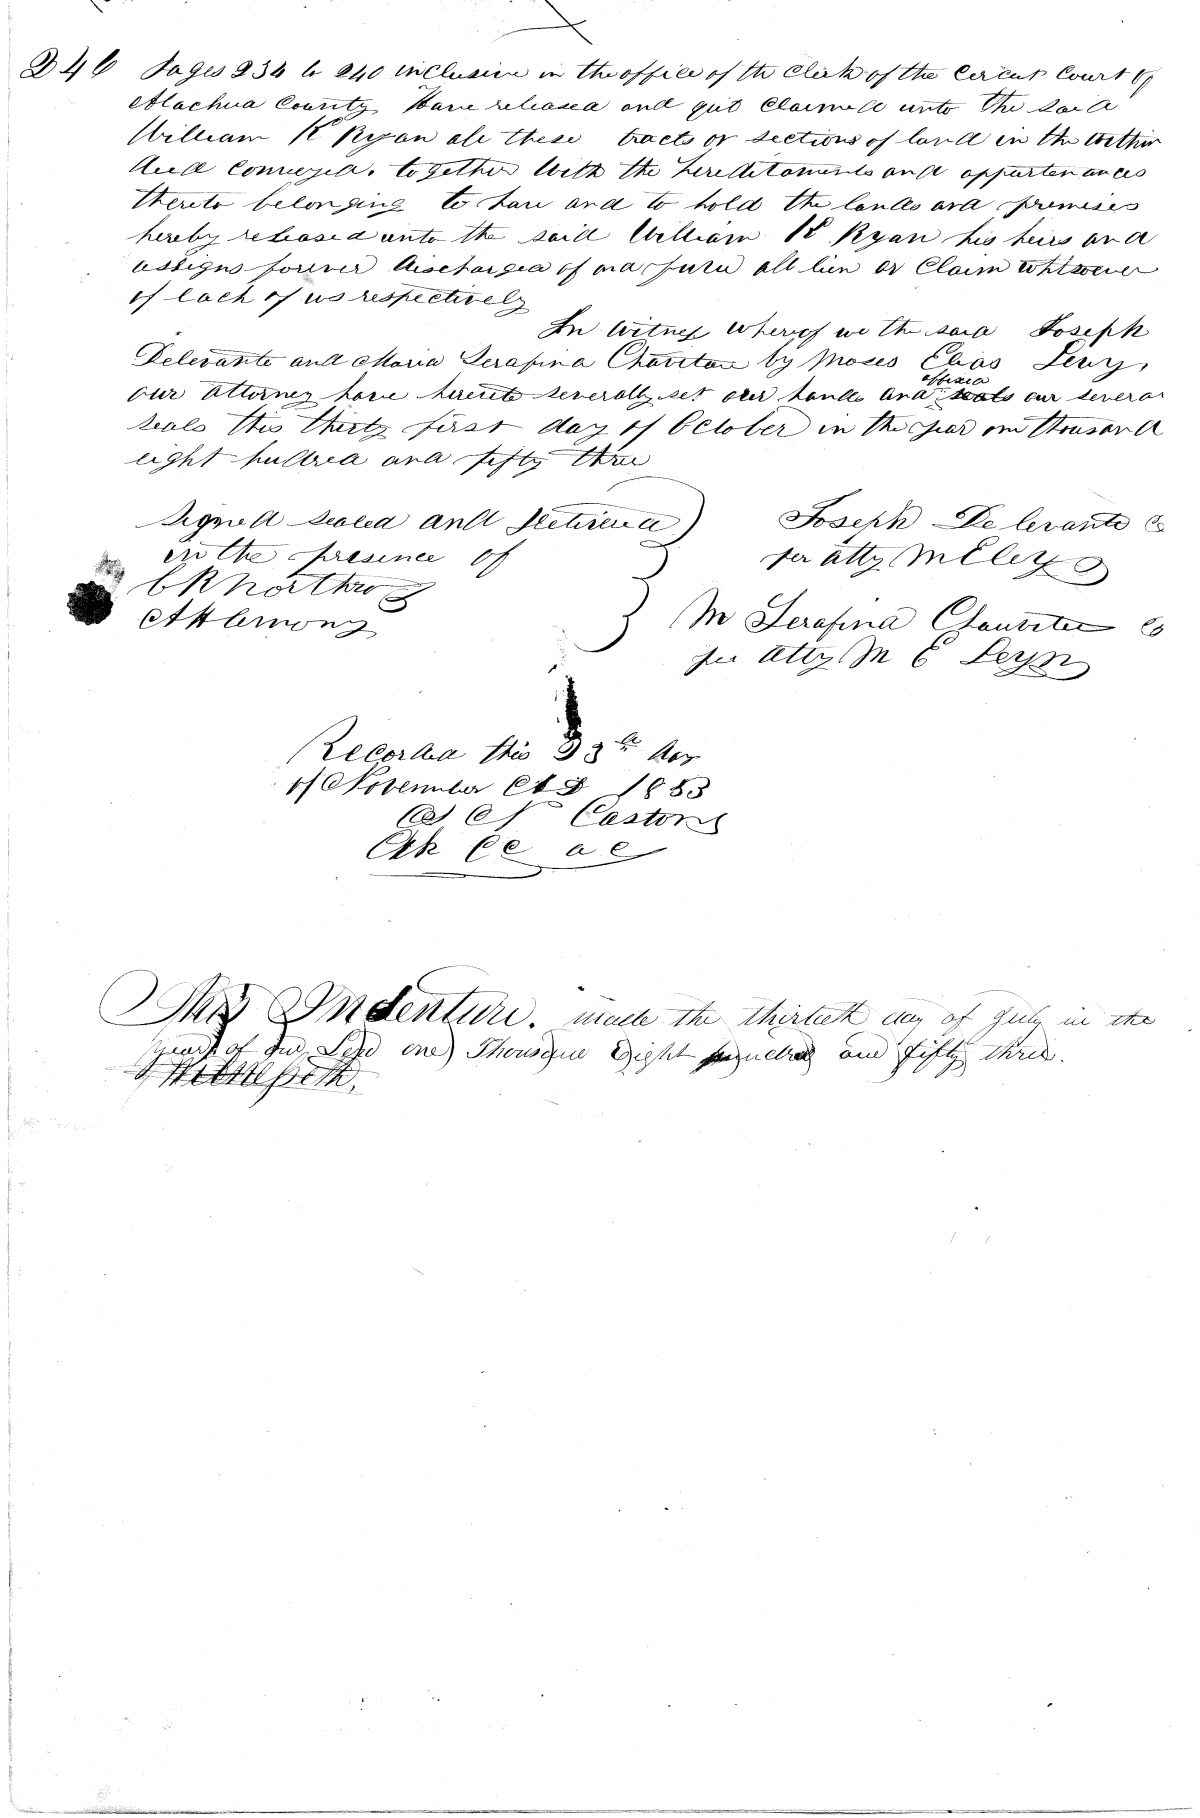 246 Pages 234 to 240 inclusive in the office of the Clerk of the Circut Court of
Alachua County Have released and quit Claimed unto the said
William K Ryan all these tracts or sections of land in the within
deed conveyed. together With the hereditaments and appurtenances
thereto belonging to have and to hold the lands and premises
hereby released unto the said William K Ryan his heirs and
assigns forever discharged of and from all lien or Claim whatsoever
of Each of us respectively
In Witness whereof we the said Joseph
Delevante and Maria Serafina Chaviteau by Moses Elias Levy,
affixed
our attorney have hereunto severally set our hands and seals our several
seals this thirty first day of October in the year one thousand
eight hundred and fifty three
Signed sealed and delivered
in the presence of
Joseph Delevante
per atty M E Levy
M Serafina
per atty M E Levy
Recorded this 23d day
of November A D 1853
Clk CC AC
This Indenture. made the thirtieth day of July in the
year of our Lord one Thousand Eight hundred and fifty three.
Witnesseth.